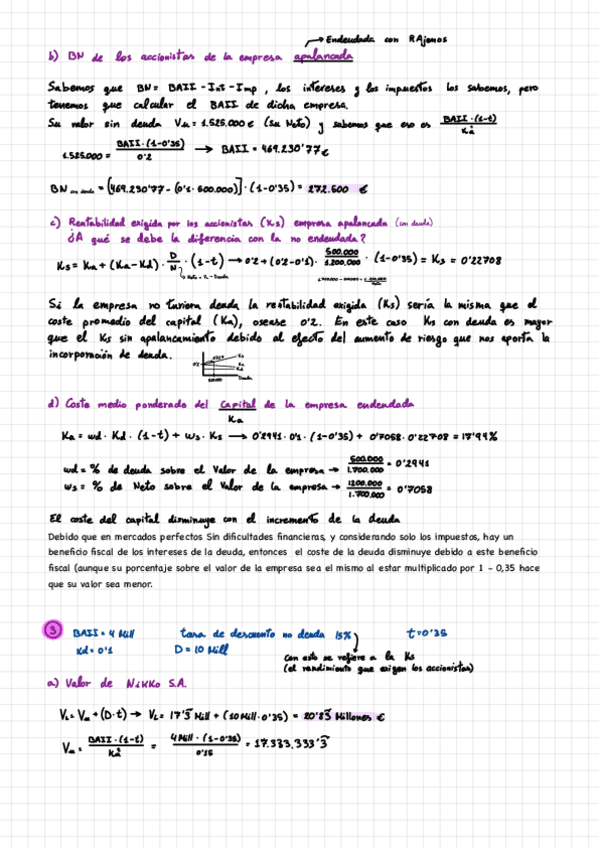 → Endeudada con RAjenos
b) BN de los accionistas de la empresa apalancada
Sabemos que BN = BAII - Int - Imp , los intereses y los impuestos los sabemos, pero
tenemos que calcular el BAII de dicha empresa.
Su valor sin deuda Vu = 1.525.000 € (Su Neto) y sabemos que eso es BAII·(1-t) / Ka
1.525.000 = BAII·(1-0'35) / 0'2 → BAII = 469.230'77€
BN con deuda = [469.230'77 - (0'1·500.000)]·(1-0'35) = 272.500 €
c) Rentabilidad exigida por los accionistas (Ks) empresa apalancada (con deuda)
¿A qué se debe la diferencia con la no endeudada?
Ks = Ka + (Ka - Kd) · D/N · (1-t) → 0'2 + (0'2-0'1) · 500.000/1.200.000 · (1-0'35) = Ks = 0'22708
Si la empresa no tuviera deuda la rentabilidad exigida (Ks) sería la misma que el
coste promedio del capital (Ka), osease 0'2. En este caso Ks con deuda es mayor
que el Ks sin apalancamiento debido al efecto del aumento de riesgo que nos aporta la
incorporación de deuda.
d) Coste medio ponderado del capital de la empresa endeudada
Ka
Ka = wd · Kd · (1-t) + ws · Ks → 0'2941·0'1 · (1-0'35) + 0'7058·0'22708 = 17'94%
wd = % de deuda sobre el Valor de la empresa → 500.000/1.700.000 = 0'2941
ws = % de Neto sobre el Valor de la empresa → 1200.000/1.700.000 = 0'7058
El coste del capital disminuye con el incremento de la deuda
Debido que en mercados perfectos Sin dificultades financieras, y considerando solo los impuestos, hay un
beneficio fiscal de los intereses de la deuda, entonces el coste de la deuda disminuye debido a este beneficio
fiscal (aunque su porcentaje sobre el valor de la empresa sea el mismo al estar multiplicado por 1 - 0,35 hace
que su valor sea menor.
3 BAII = 4 Mill tasa de descuento no deuda 15% t = 0'35
Kd = 0'1 D = 10 Mill
Con esto se refiere a la Ks
(el rendimiento que exigen los accionistas)
a) Valor de Nikko S.A.
VL = Vu + (D·t) → VL = 17'3 Mill + (10 Mill·0'35) = 20'83 Millones €
Vu = BAII·(1-t) / Ka = 4 Mill · (1-0'35) / 0'15 = 17.333.333'3